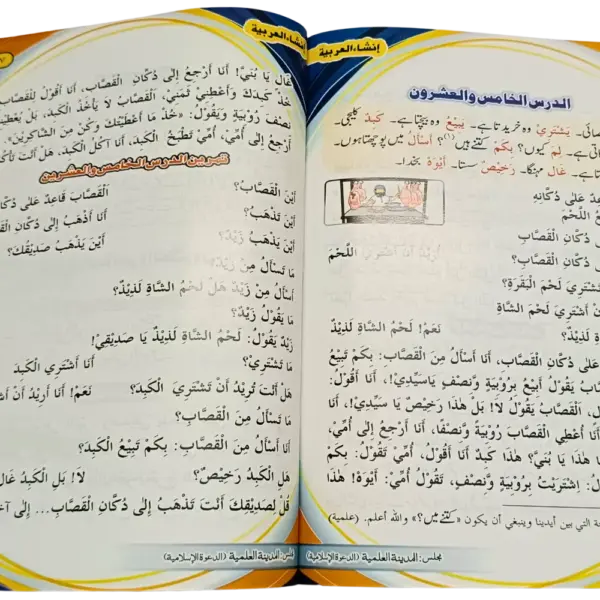 إنشاء العربية
الدرس الخامس والعشرون
صائی۔ يَشْتَرِيْ وہ خریدتا ہے۔ يَبِيْعُ وہ بیچتا ہے۔ كَبِدٌ کلیجی۔
اتی ہے۔ لِمَ کیوں؟ بِكَمْ کتنے میں؟(١) أَسْأَلُ میں پوچھتا ہوں۔
تا ہے۔ غَالٍ مہنگا۔ رَخِيْصٌ سستا۔ أَيْوَهْ بخدا۔
عِدٌ عَلٰى دُكَّانِهِ
عُ اللَّحْمَ
دُكَّانِ الْقَصَّابِ
أُرِيْدُ أَنْ أَشْتَرِيَ اللَّحْمَ
دُكَّانِ الْقَصَّابِ؟
تَشْتَرِيَ لَحْمَ الْبَقَرَةِ؟
أَنْ أَشْتَرِيَ لَحْمَ الشَّاةِ
ةِ لَذِيْذٌ؟
نَعَمْ! لَحْمُ الشَّاةِ لَذِيْذٌ
عَلٰى دُكَّانِ الْقَصَّابِ، أَنَا أَسْأَلُ مِنَ الْقَصَّابِ: بِكَمْ تَبِيْعُ
صَّابُ يَقُوْلُ أَبِيْعُ بِرُوْبِيَةٍ وَّنِصْفٍ يَاسَيِّدِيْ!، أَنَا أَقُوْلُ:
لٍ، الْقَصَّابُ يَقُوْلُ لَا! بَلْ هٰذَا رَخِيْصٌ يَا سَيِّدِيْ!، أَنَا
أَنَا أُعْطِي الْقَصَّابَ رُوْبِيَةً وَّنِصْفًا، أَنَا أَرْجِعُ إِلٰى أُمِّيْ،
هٰذَا يَا بُنَيَّ؟ هٰذَا كَبِدٌ أَنَا أَقُوْلُ، أُمِّيْ تَقُوْلُ: بِكَمْ
لُ: اِشْتَرَيْتُ بِرُوْبِيَةٍ وَّنِصْفٍ، تَقُوْلُ أُمِّيْ: أَيْوَهْ! هٰذَا
خة التي بين أيدينا وينبغي أن يكون «کتنے میں؟» والله أعلم. (علمية)
مجلس: المدينة العلمية (الدعوة الإسلامية)
إنشاء العربية
قَالَ يَا بُنَيَّ! أَنَا أَرْجِعُ إِلٰى دُكَّانِ الْقَصَّابِ، أَنَا أَقُوْلُ لِلْقَصَّابِ
خُذْ كَبِدَكَ وَأَعْطِنِيْ ثَمَنِيْ، الْقَصَّابُ لَا يَأْخُذُ الْكَبِدَ، بَلْ يُعْطِيْنِيْ
نِصْفَ رُوْبِيَةٍ وَيَقُوْلُ: «خُذْ مَا أَعْطَيْتُكَ وَكُنْ مِنَ الشَّاكِرِيْنَ».
أَرْجِعُ إِلٰى أُمِّيْ، أُمِّيْ تَطْبَخُ الْكَبِدَ، أَنَا آكُلُ الْكَبِدَ، هَلْ أَنْتَ تَأْكُلُ
تمرين الدرس الخامس والعشرين
أَيْنَ الْقَصَّابُ؟
اَلْقَصَّابُ قَاعِدٌ عَلٰى دُكَّانِ
أَيْنَ تَذْهَبُ؟
أَنَا أَذْهَبُ إِلٰى دُكَّانِ الْقَصَّابِ
أَيْنَ يَذْهَبُ زَيْدٌ؟
أَيْنَ يَذْهَبُ صَدِيْقُكَ؟
مَا تَسْأَلُ مِنْ زَيْدٍ؟
أَسْأَلُ مِنْ زَيْدٍ هَلْ لَحْمُ الشَّاةِ لَذِيْذٌ؟
مَا يَقُوْلُ زَيْدٌ؟
زَيْدٌ يَقُوْلُ: لَحْمُ الشَّاةِ لَذِيْذٌ يَا صَدِيْقِيْ!
مَا تَشْتَرِيْ؟
أَنَا أَشْتَرِي الْكَبِدَ
هَلْ أَنْتَ تُرِيْدُ أَنْ تَشْتَرِيَ الْكَبِدَ؟
نَعَمْ! أَنَا أُرِيْدُ أَنْ
مَا تَسْأَلُ مِنَ الْقَصَّابِ؟
أَنَا أَسْأَلُ مِنَ الْقَصَّابِ: بِكَمْ تَبِيْعُ الْكَبِدَ؟
هَلِ الْكَبِدُ رَخِيْصٌ؟
لَا! بَلِ الْكَبِدُ غَالٍ
قُلْ لِصَدِيْقِكَ أَنْتَ تَذْهَبُ إِلٰى دُكَّانِ الْقَصَّابِ... إِلٰى
مجلس: المدينة العلمية (الدعوة الإسلامية)